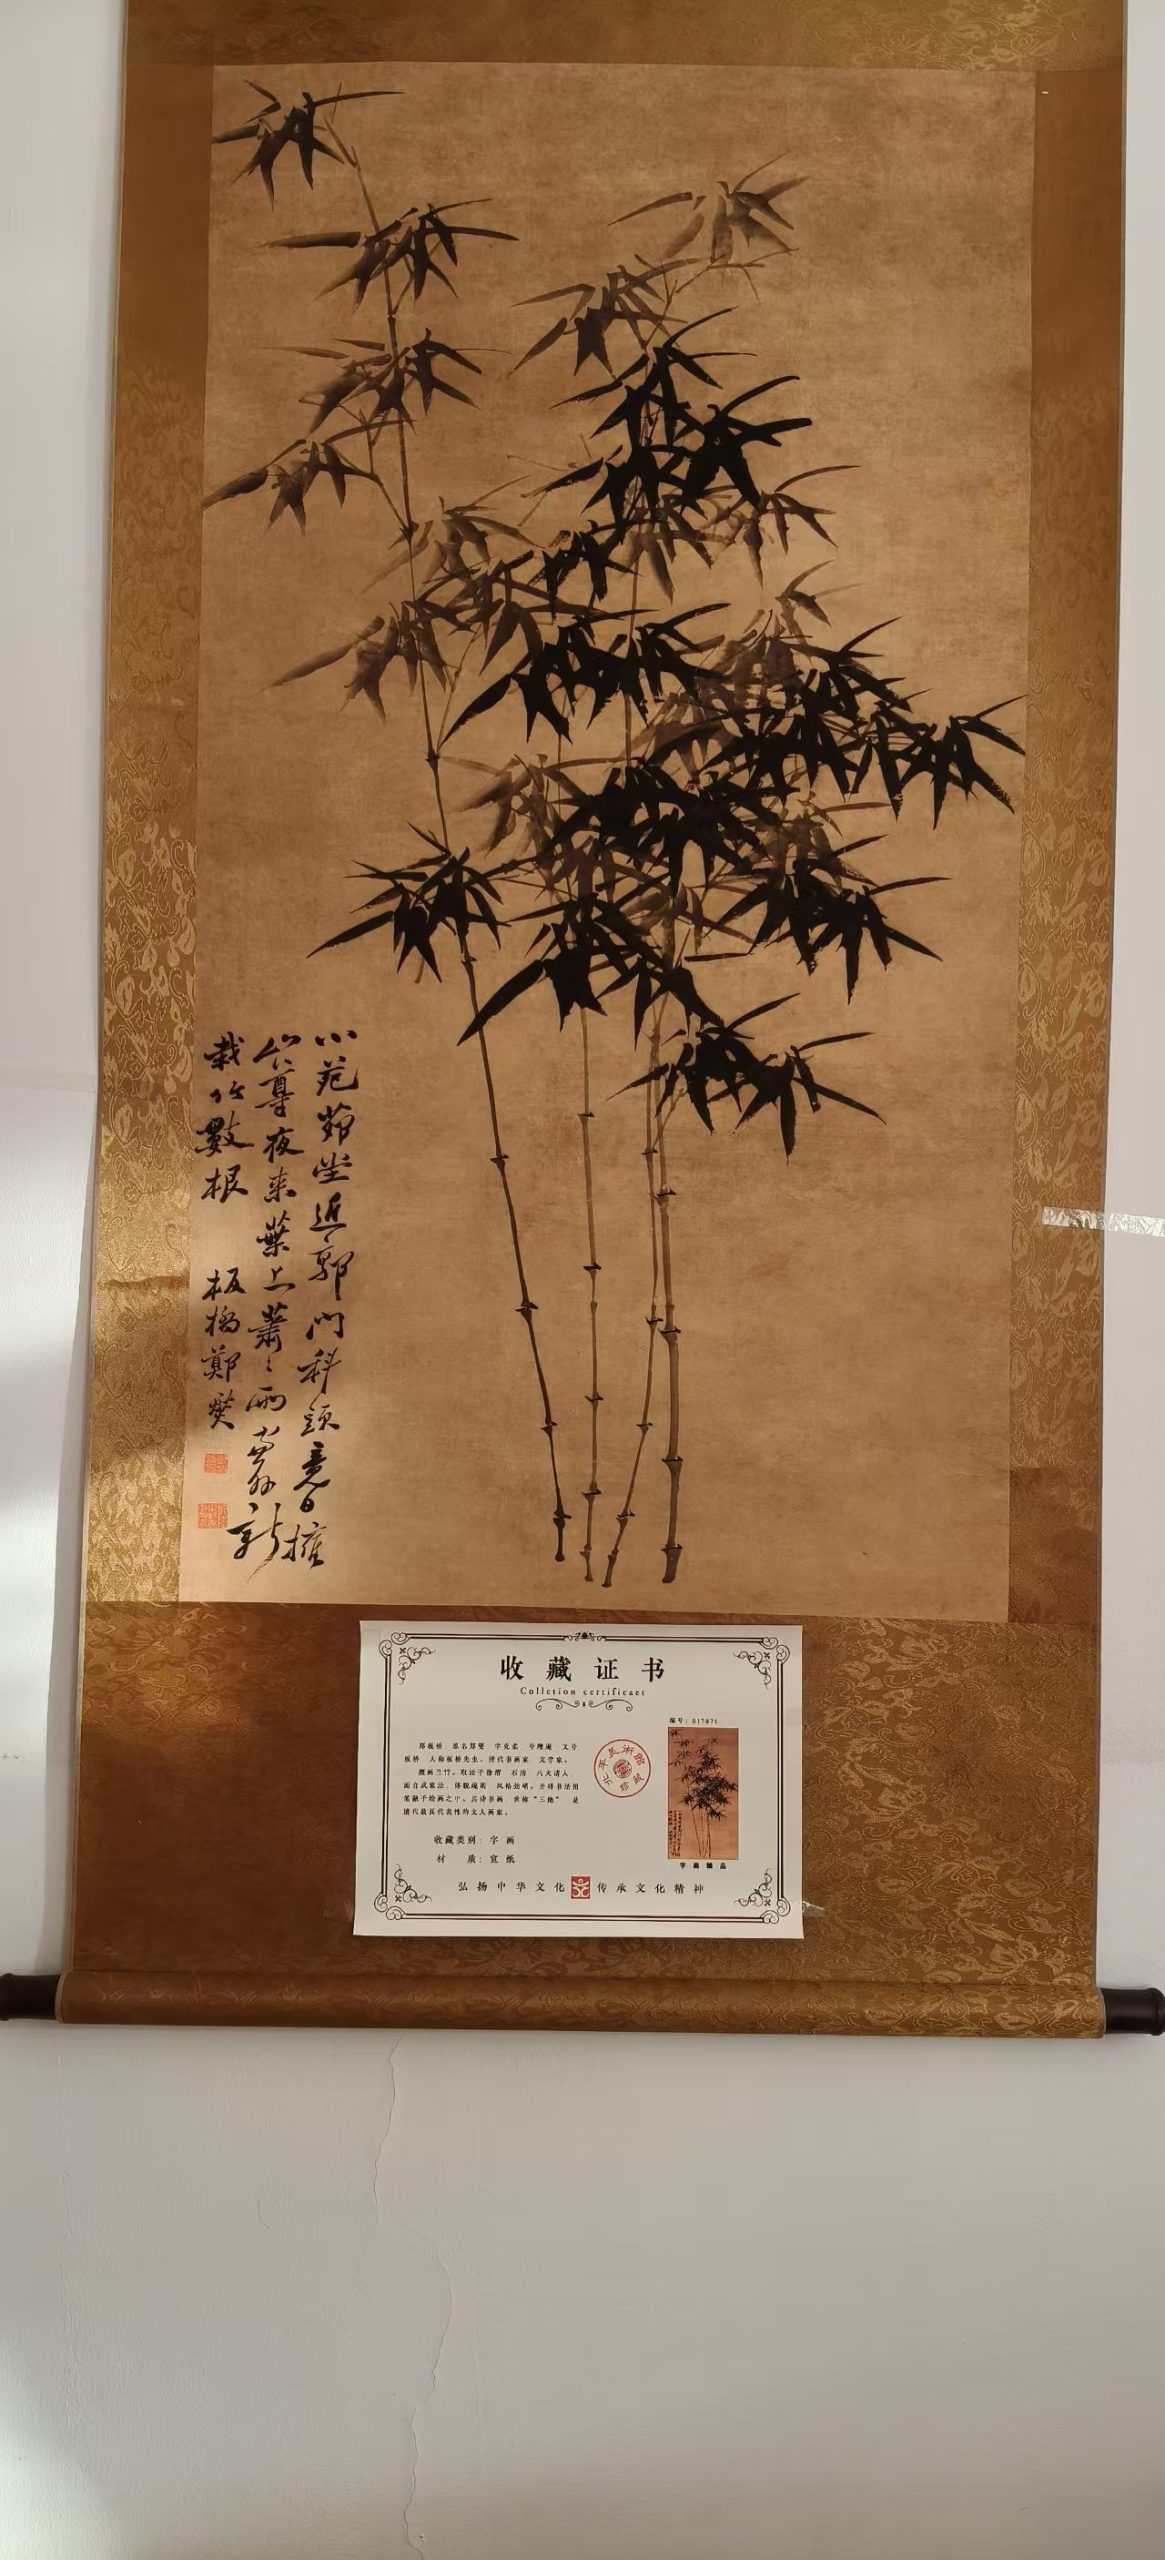 小苑茆堂近郭門科頭竟日擁
山尊夜來葉上蕭〻雨窗外新
栽竹數根 板橋鄭燮
收藏证书
Colletion certificaet
编号:017871
郑板桥,原名郑燮,字克柔,号理庵,又号
板桥,人称板桥先生。清代书画家、文学家。
擅画兰竹。取法于徐渭、石涛、八大诸人,
而自成家法,体貌疏朗,风格劲峭。并将书法用
笔融于绘画之中。其诗书画,世称“三绝”,是
清代最具代表性的文人画家。
北平美术馆
珍藏
收藏类别:字画
材 质:宣纸
字画臻品
弘扬中华文化 传承文化精神